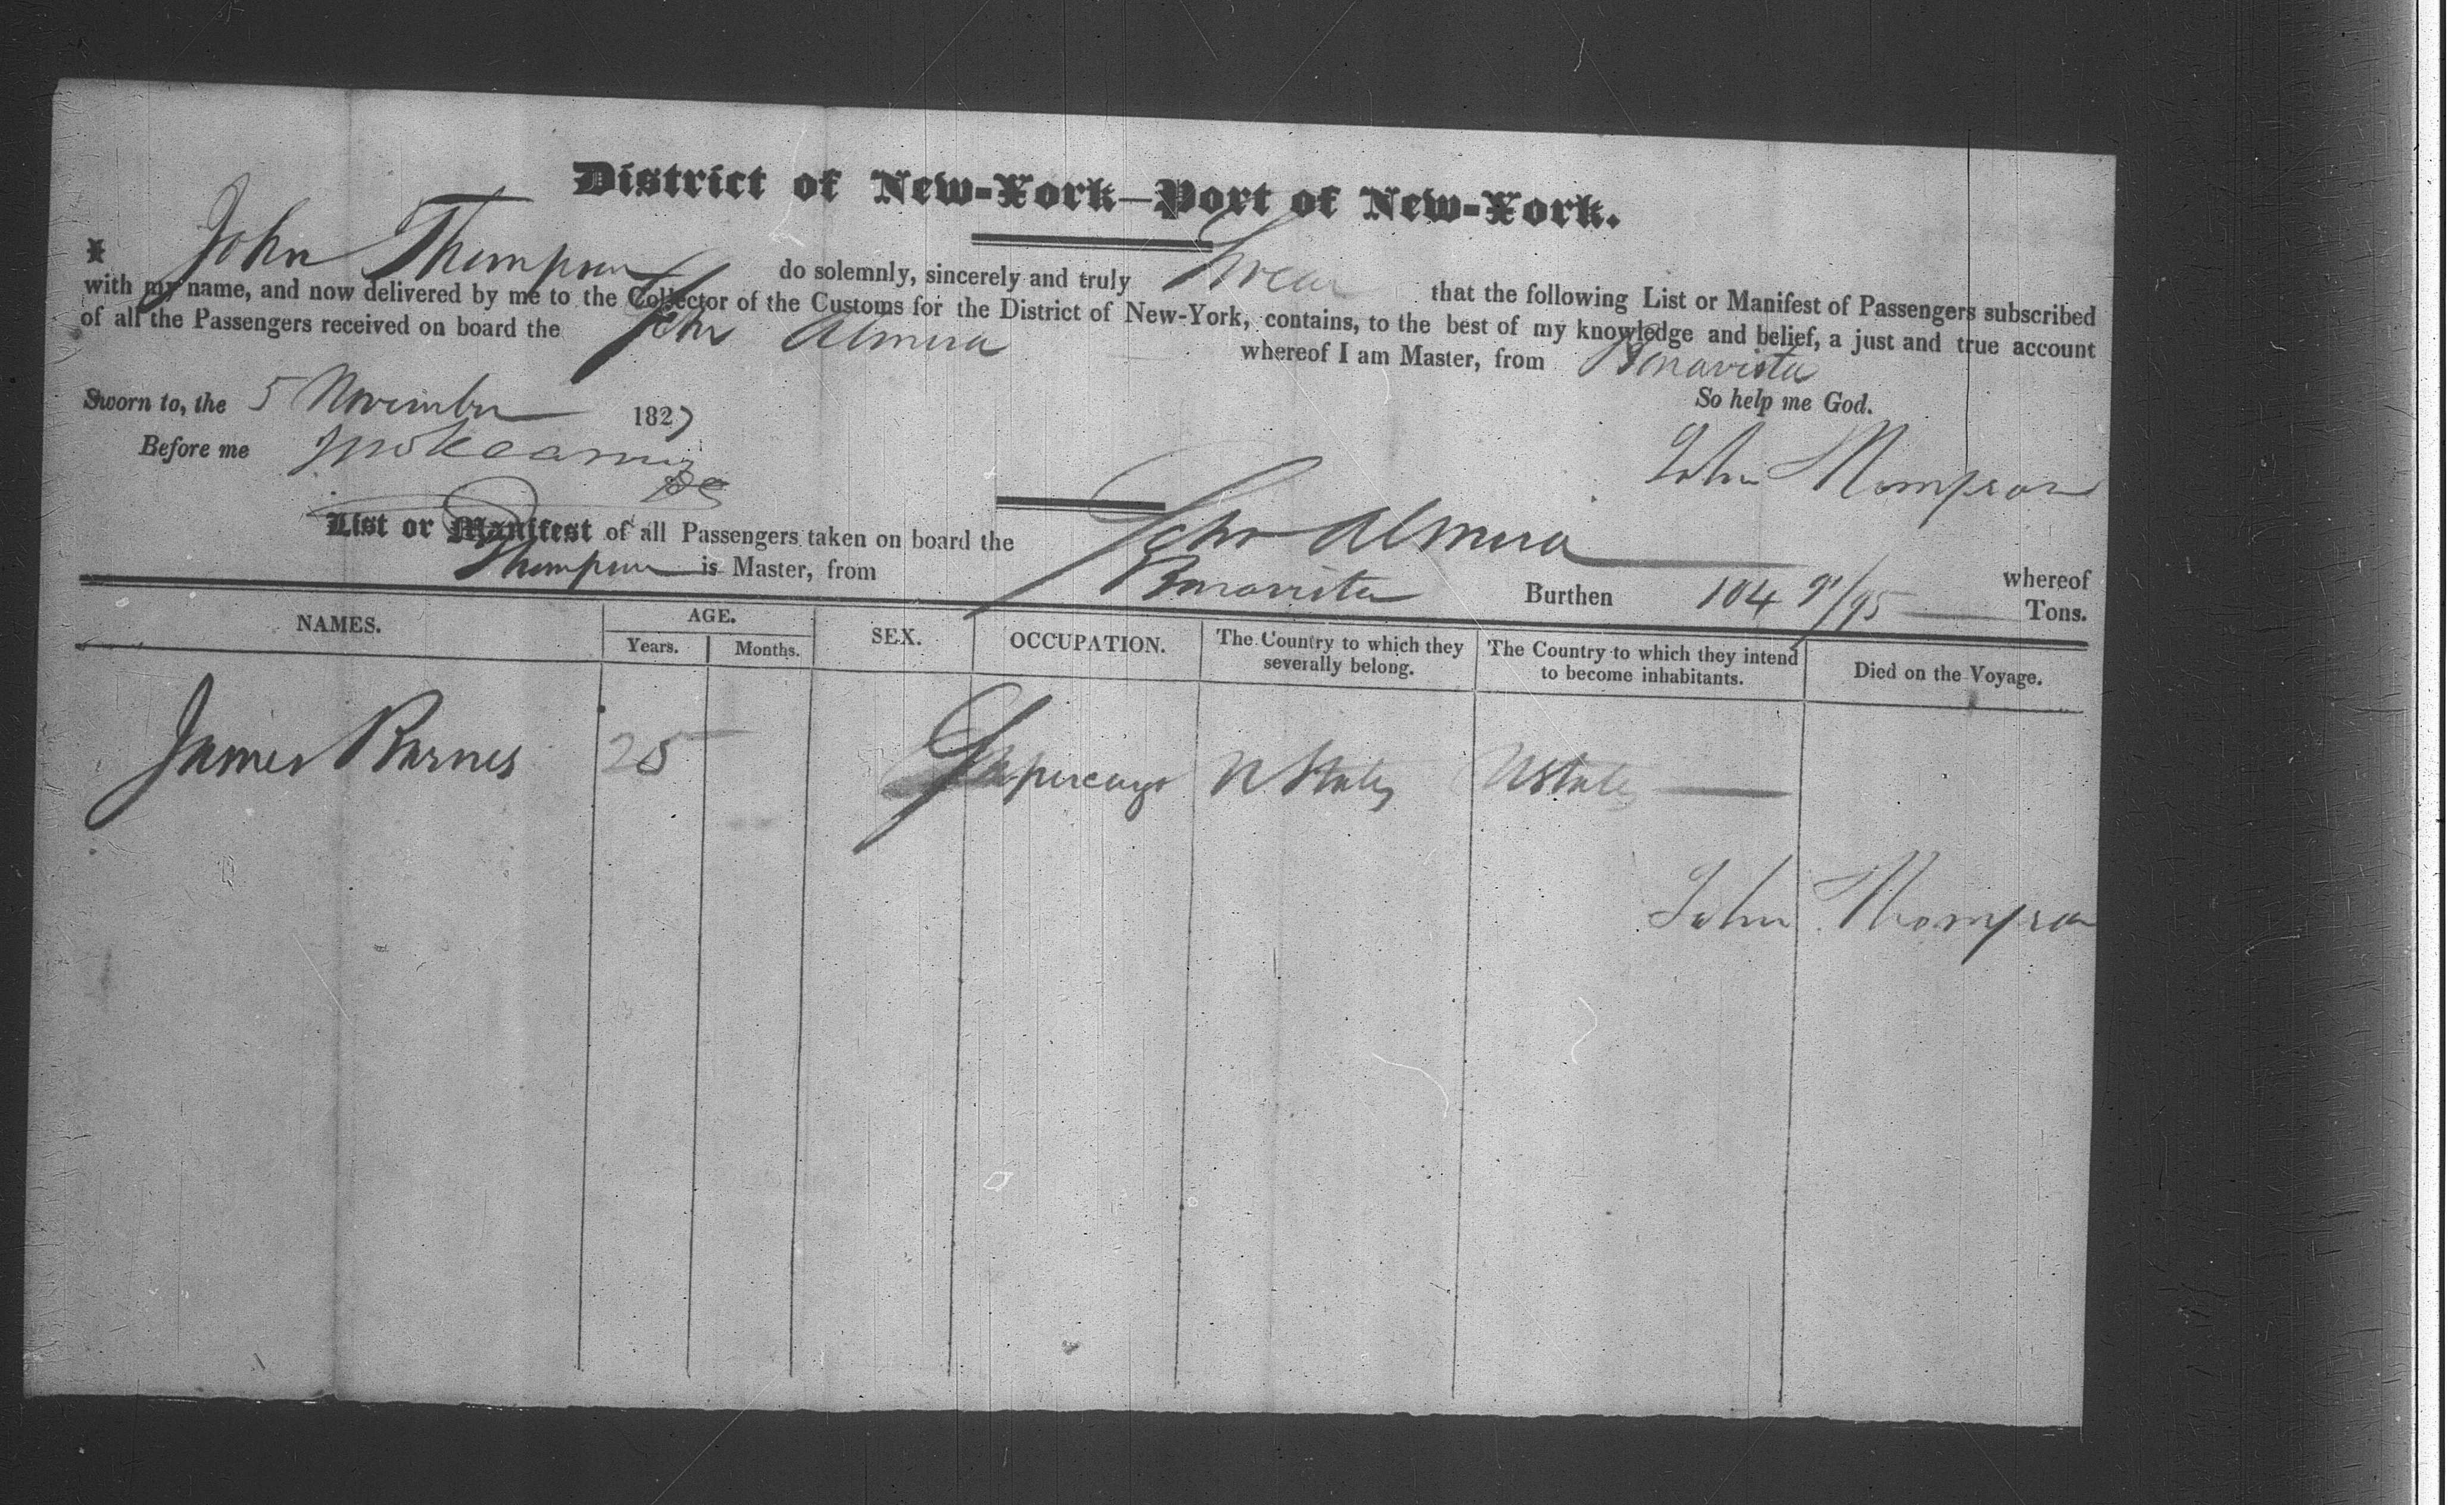 District of New-York—Port of New-York.
I John Thompson do solemnly, sincerely and truly Swear that the following List or Manifest of Passengers subscribed
with my name, and now delivered by me to the Collector of the Customs for the District of New-York, contains, to the best of my knowledge and belief, a just and true account
of all the Passengers received on board the Schr Almira whereof I am Master, from Bonavista
So help me God.
Sworn to, the 5 November 1827
Before me
John Thompson
List or Manifest of all Passengers taken on board the Schr Almira whereof
Thompson is Master, from Bonavista Burthen 104 91/95 Tons.
NAMES. AGE. SEX. OCCUPATION. The Country to which they severally belong. The Country to which they intend to become inhabitants. Died on the Voyage.
Years. Months.
James Barnes 25 Supercargo U States U States
John Thompson